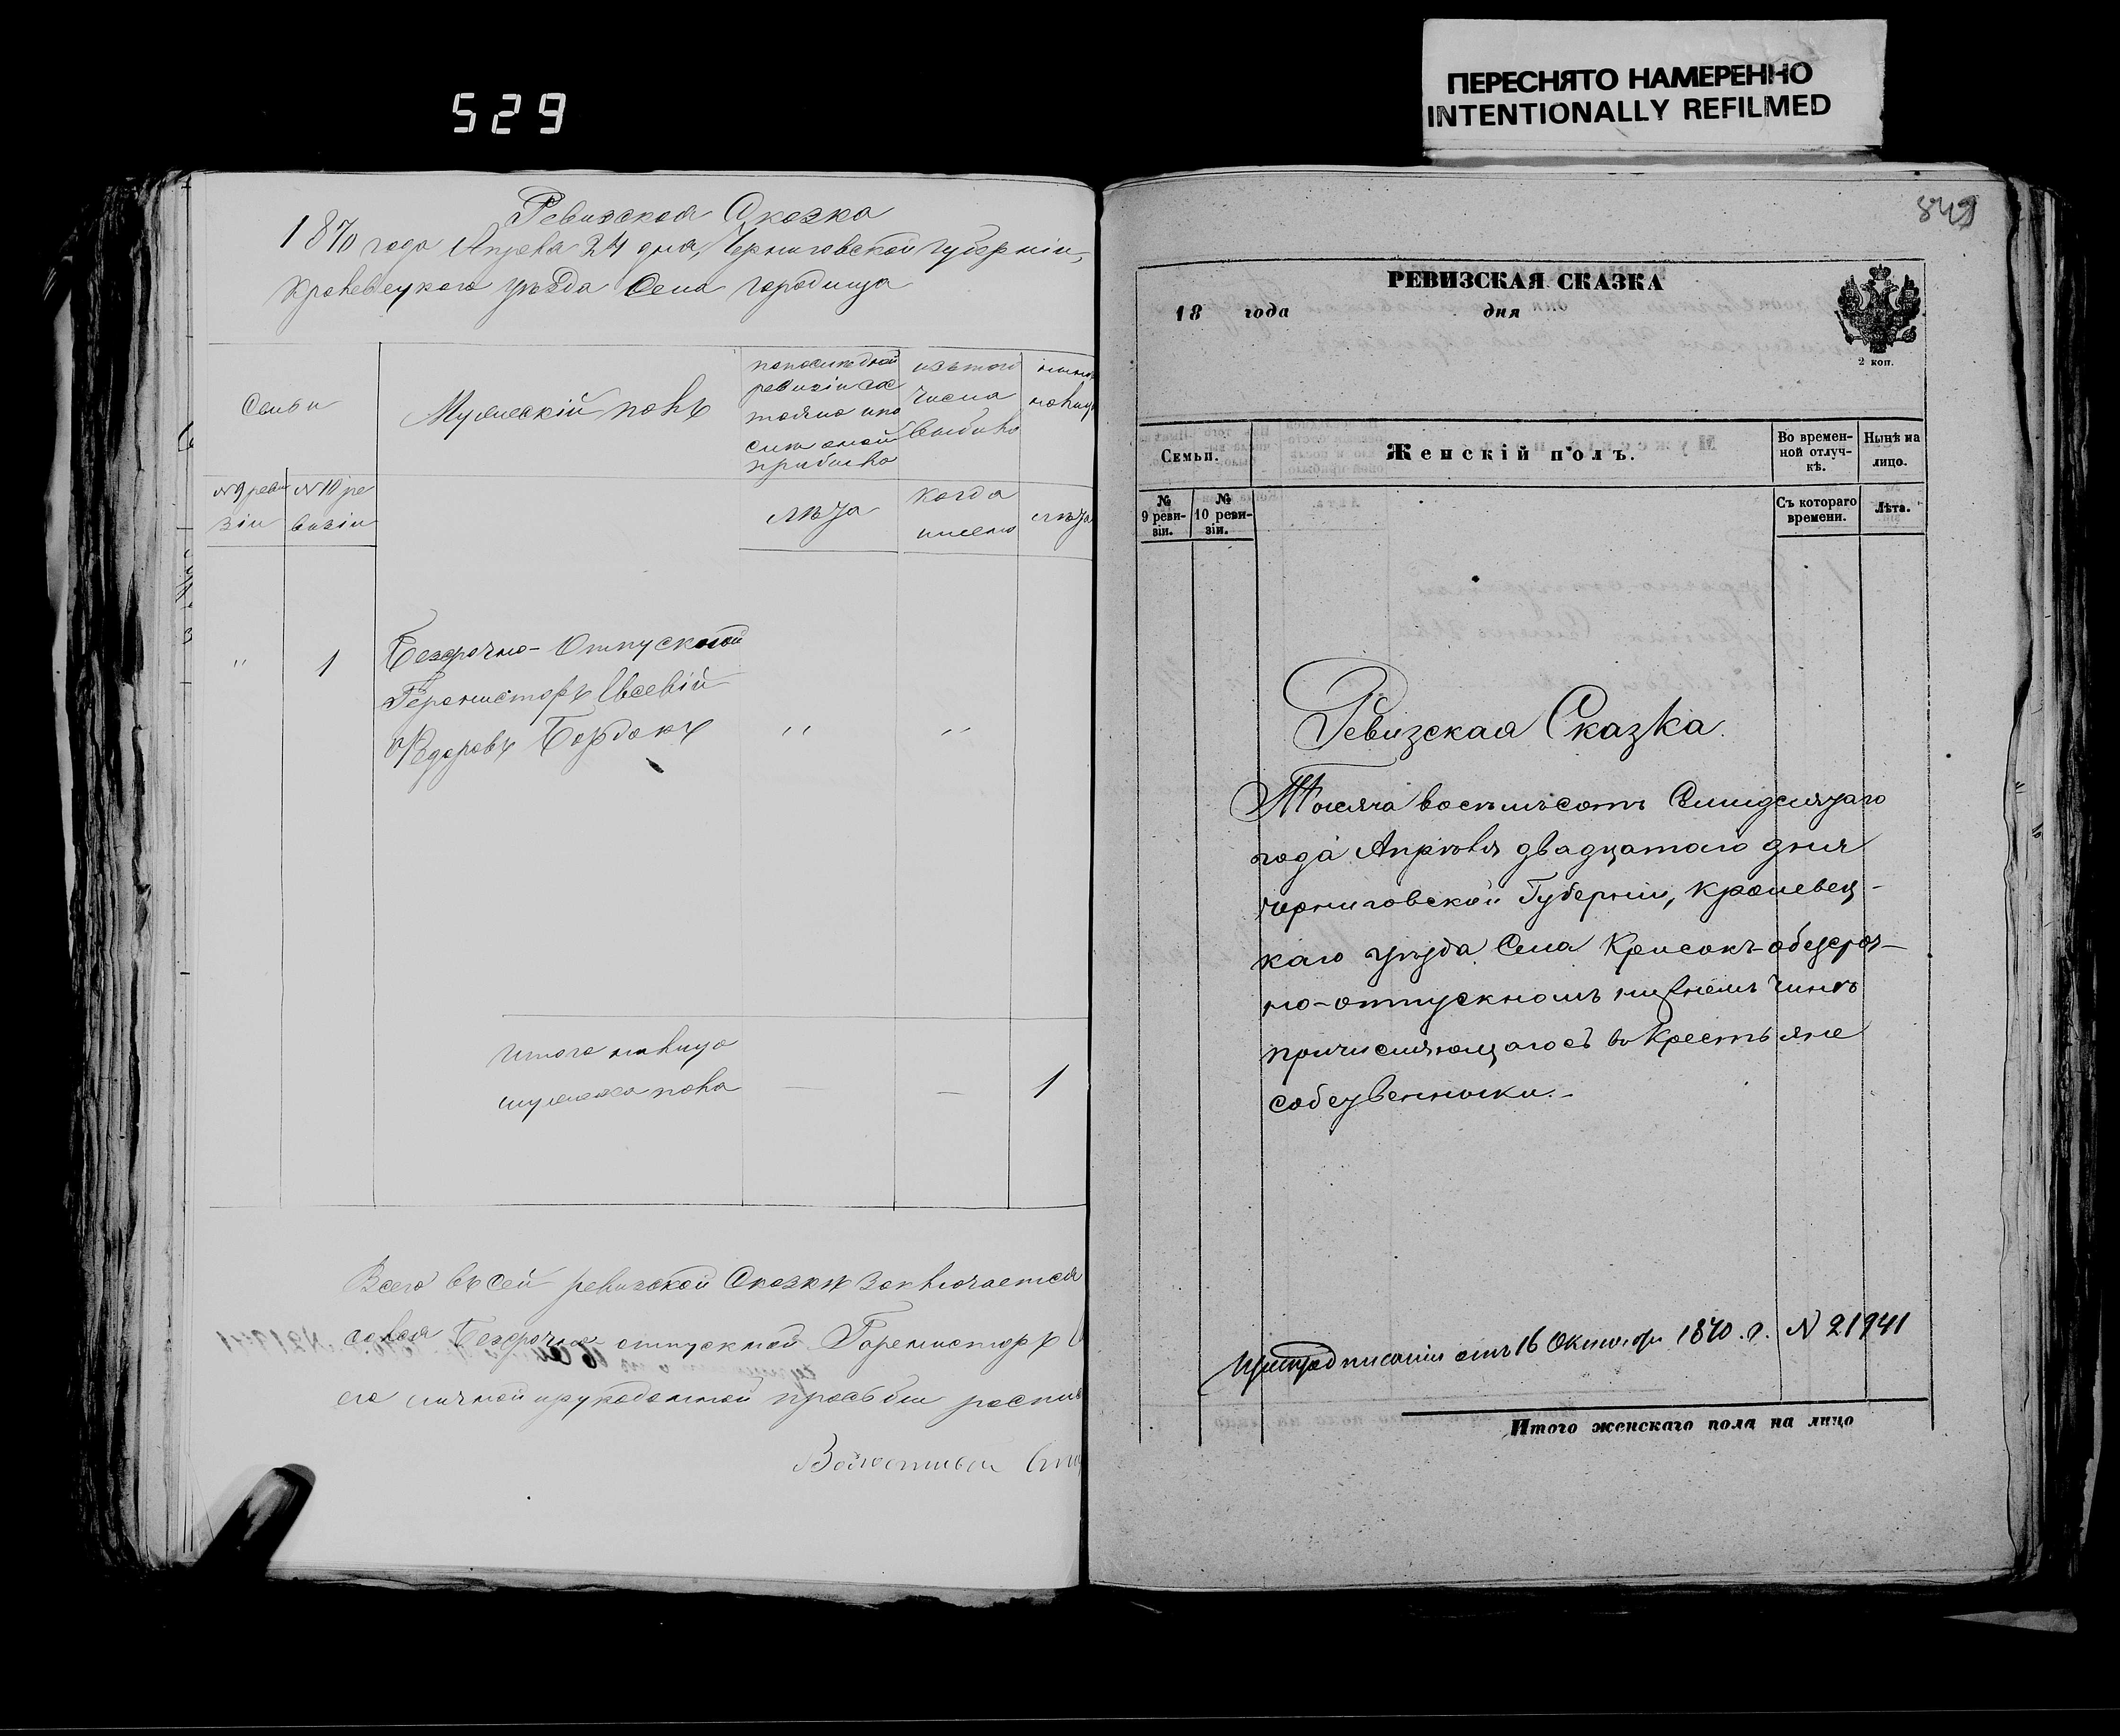 529
ПЕРЕСНЯТО НАМЕРЕННО
INTENTIONALLY REFILMED
Ревизская Сказка
1870 года Апреля 24 дня, Черниговской губерніи,
Кролевецкого уѣзда Села Городища
Семьи
Мужескій полъ
по последней
ревизіи сос
тояло и по
сле оной
прибыло
изъ того
числа
выбыло
№ 9 реви
зіи
№ 10 ре
визіи
лѣта
когда
именно
лѣта
"
1
Безсрочно-Отпускной
Евсевій
Федоровъ Бордокъ
"
"
Итого налицо
мужеска пола
—
—
1
Всего въ сей ревизской Сказкѣ заключается
Безсрочно отпускной
его личной и рукоданной просьбы
Волостный
849
РЕВИЗСКАЯ СКАЗКА
18 года дня
2 коп.
Семьи.
Женскій полъ.
Во времен-
ной отлуч-
кѣ.
Нынѣ на
лицо.
№
9 реви-
зіи.
№
10 реви-
зіи.
Съ котораго
времени.
Лѣта.
Ревизская Сказка.
Тысяча восемьсотъ Семидесятаго
года Апрѣля двадцатаго дня
Черниговской Губерніи, Кролевец-
каго уѣзда Села Крисокъ о безсроч-
но-отпускномъ нижнемъ чинѣ
причисляющагося въ Крестьяне
собственники.-
При предписаніи отъ 16 Октября 1870 г. N 21941
Итого женскаго пола на лицо